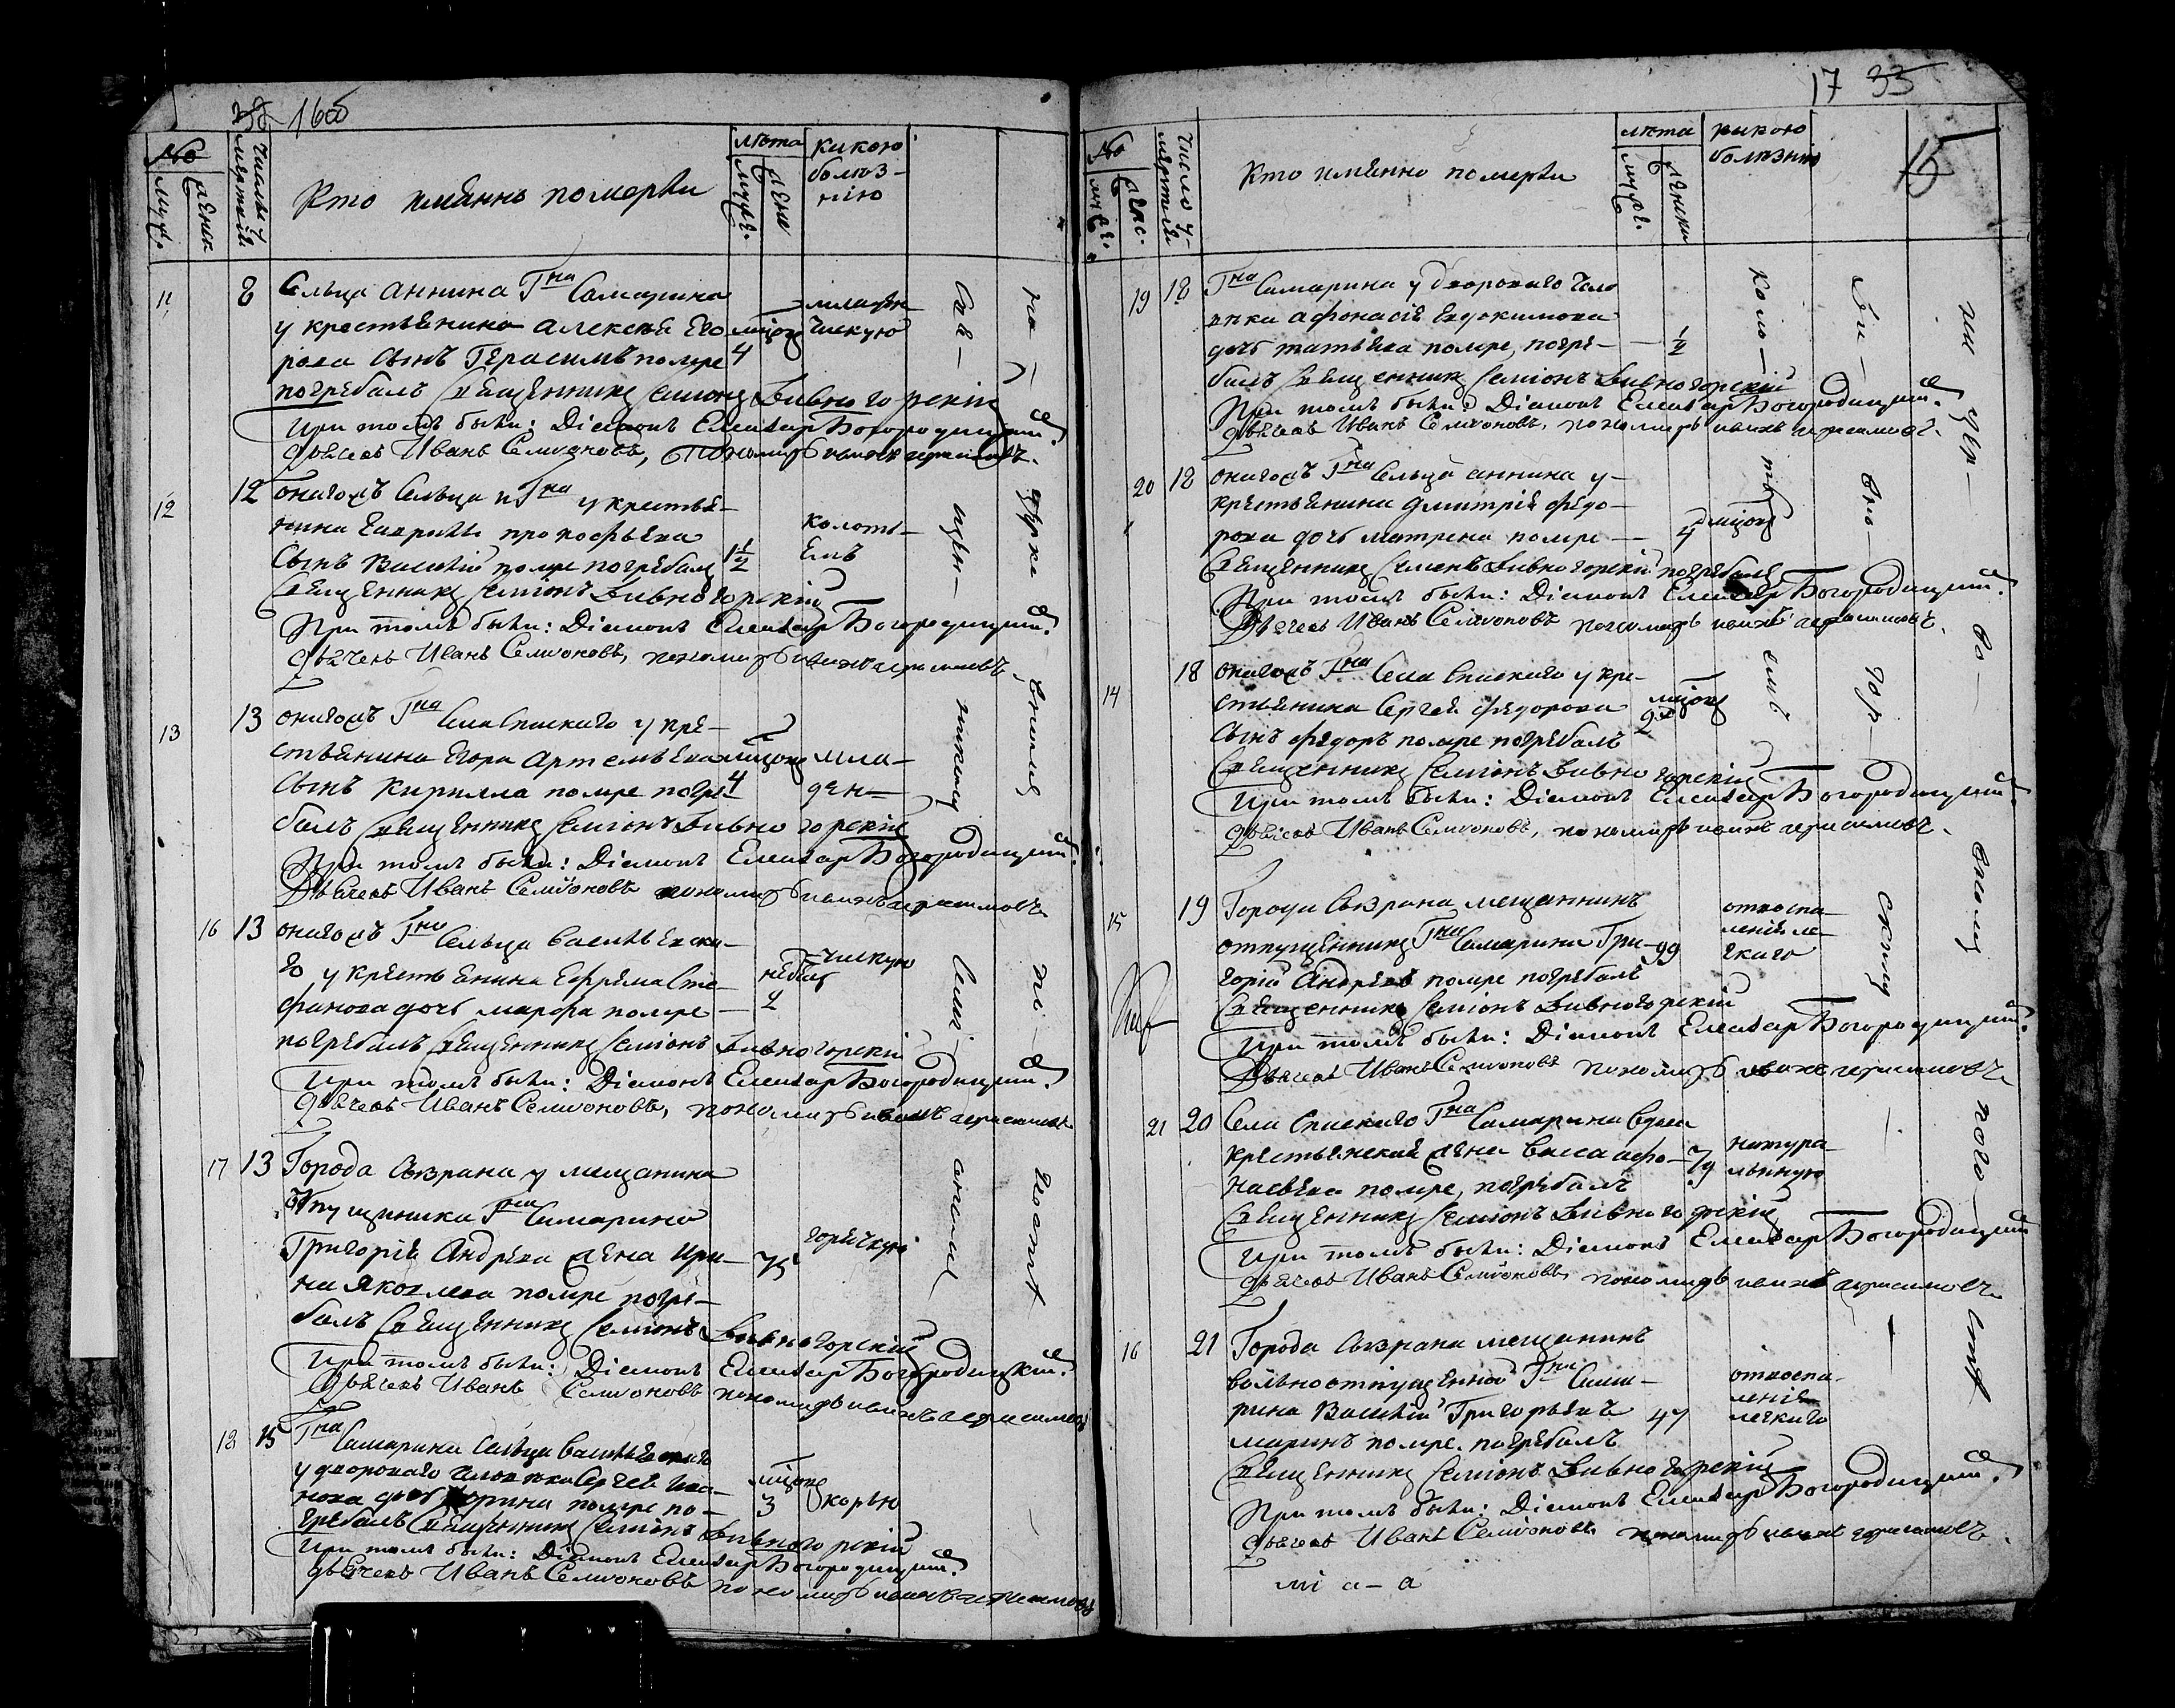 16об
№
муж.
женск
число умертвія
Кто имянно померли
лѣта
муж.
жен
какою болѣз-
нію
11
8
Сельца Аннина Гна Самарина
у крестьянина Алексѣя Его
рова сынъ Герасимъ помре
мѣсяц
4
младен
ческую
погребалъ священникъ Семіонъ Дивногорскій
При томъ были: Діаконъ Елеазаръ Богородицкій.
дьячекъ Иванъ Семіоновъ, пономарь Иванъ Герасимовъ.
12
12
Онагожъ сельца и Гна у крестья-
нина Гаврилы Прокофьева
сынъ Василій помре погребалъ
1½
колоть-
емъ
священникъ Семіонъ Дивногорскій
При томъ были: Діаконъ Елеазаръ Богородицкій.
дьячекъ Иванъ Семіоновъ, пономарь Иванъ Герасимовъ
13
13
Онагожъ Гна села Спаскаго у кре-
стьянина Егора Артемьева
сынъ Кирилла помре погре-
4
мла-
ден-
балъ священникъ Семіонъ Дивногорскій
При томъ были: Діаконъ Елеазаръ Богородицкій.
Дьячекъ Иванъ Семіоновъ пономарь Иванъ Герасимовъ
16
13
Онагожъ Гна сельца Васильевска-
го у крестьянина Ефрема Сте-
фанова дочь Марфа помре
недѣл
2
ческую
погребалъ священникъ Семіонъ Дивногорскій
При томъ были: Діаконъ Елеазаръ Богородицкій.
дьячекъ Иванъ Семіоновъ, пономарь Иванъ Герасимовъ
17
13
Города Сызрана у мещанина
отпущеника Гна Самарина
Григорія Андрѣва жена Ири-
на Яковлева помре погре-
75
горячкою
балъ священникъ Семіонъ Дивногорскій
При томъ были: Діаконъ Елеазаръ Богородицкій.
дьячекъ Иванъ Семіоновъ пономарь Иванъ Герасимовъ
18
15
Гна Самарина сельца Васильевскаго
у двороваго человѣка Сергея Ива-
нова дочь помре по-
мѣсяц
3
корью
гребалъ священникъ Семіонъ Дивногорскій
При томъ были: Діаконъ Елеазаръ Богородицкій
дьячекъ Иванъ Семіоновъ пономарь Иванъ Герасимовъ
17 33
15
№
муж.
женс.
число умертвія
Кто имянно померли
лѣта
муж.
женска
какою
болѣзнію
19
18
Гна Самарина у двороваго чело
вѣка Афонасія Евдокимова
дочь Татьяна помре, погре-
½
балъ священникъ Семіонъ Дивногорскій
При томъ были: Діаконъ Елеазаръ Богородицкій.
дьячекъ Иванъ Семіоновъ, пономарь Иванъ Герасимовъ.
20
18
Онагожъ Гна сельца Аннина у
крестьянина Дмитрія Федо-
рова дочь Матрена помре
4 мѣсяц
священникъ Семіонъ Дивногорскій погребалъ
При томъ были: Діаконъ Елеазаръ Богородицкій.
Дьячекъ Иванъ Семіоновъ пономарь Иванъ Герасимовъ.
14
18
Онагожъ Гна села Спаскаго у кре-
стьянина Сергея Федорова
сынъ Федоръ помре погребалъ
мѣсяц
священникъ Семіонъ Дивногорскій
При томъ были: Діаконъ Елеазаръ Богородицкій
дьячекъ Иванъ Семіоновъ, пономарь Иванъ Герасимовъ.
15
19
Города Сызрана мещанинъ
отпущенникъ Гна Самарина Гри-
горій Андрѣевъ помре погребалъ
99
отвоспа-
ленія ле-
гкаго
священникъ Семіонъ Дивногорскій
При томъ были: Діаконъ Елеазаръ Богородицкій.
Дьячекъ Иванъ Семіоновъ пономарь Иванъ Герасимовъ
21
20
Села Спаскаго Гна Самарина вдова
крестьянская жена Васса Афо-
насьева помре, погребалъ
79
натура
льною
священникъ Семіонъ Дивногорскій
При томъ были: Діаконъ Елеазаръ Богородицкій
дьячекъ Иванъ Семіоновъ пономарь Иванъ Герасимовъ
16
21
Города Сызрана мещанинъ
вольноотпущенной Гна Сама-
рина Василій Григорьевъ
Маринъ помре. погребалъ
47
отвоспа-
ленія
легкаго
священникъ Семіонъ Дивногорскій
При томъ были: Діаконъ Елеазаръ Богородицкій.
дьячекъ Иванъ Семіоновъ пономарь Иванъ Герасимовъ.